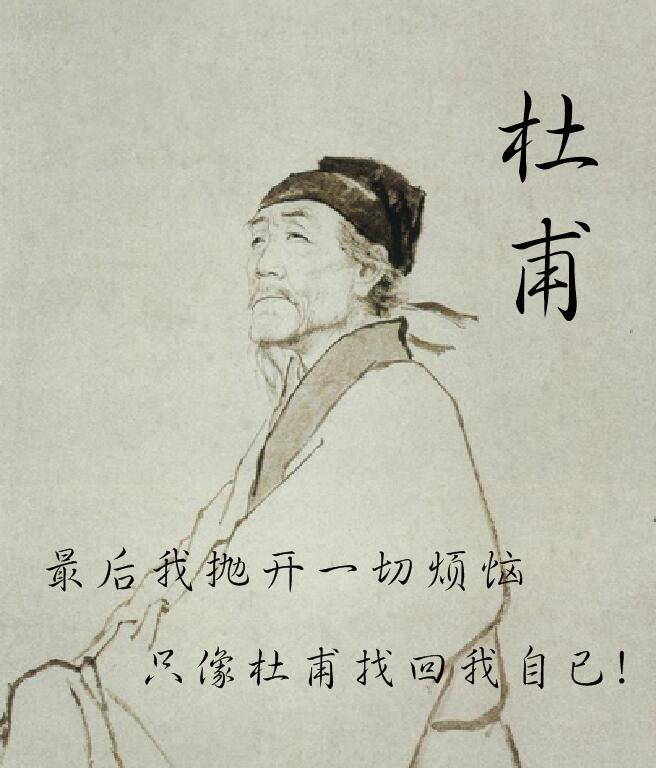 杜甫
最后我抛开一切烦恼
只像杜甫找回我自己!